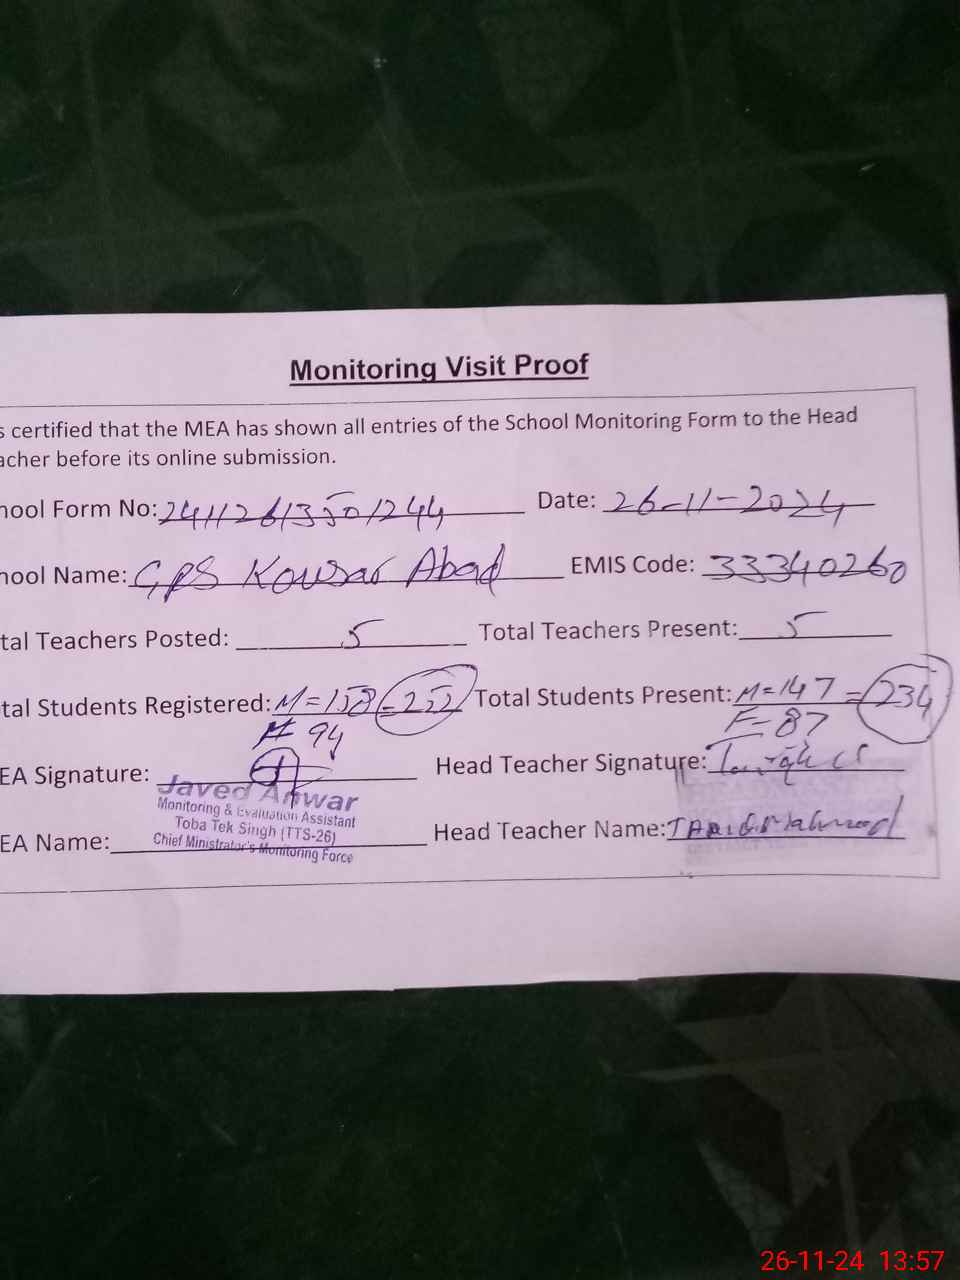 Monitoring Visit Proof
s certified that the MEA has shown all entries of the School Monitoring Form to the Head
acher before its online submission.
hool Form No: 24112613501244 Date: 26-11-2024
hool Name: GPS Kowsar Abad EMIS Code: 33340260
tal Teachers Posted: 5 Total Teachers Present: 5
tal Students Registered: M=158 =252 Total Students Present: M=147 =234
F= 94 F=87
EA Signature: Head Teacher Signature:
Javed Anwar
Monitoring & Evaluation Assistant
Toba Tek Singh (TTS-26)
Chief Ministrator's Monitoring Force
EA Name: Head Teacher Name: Tariq Mahmood
26-11-24 13:57